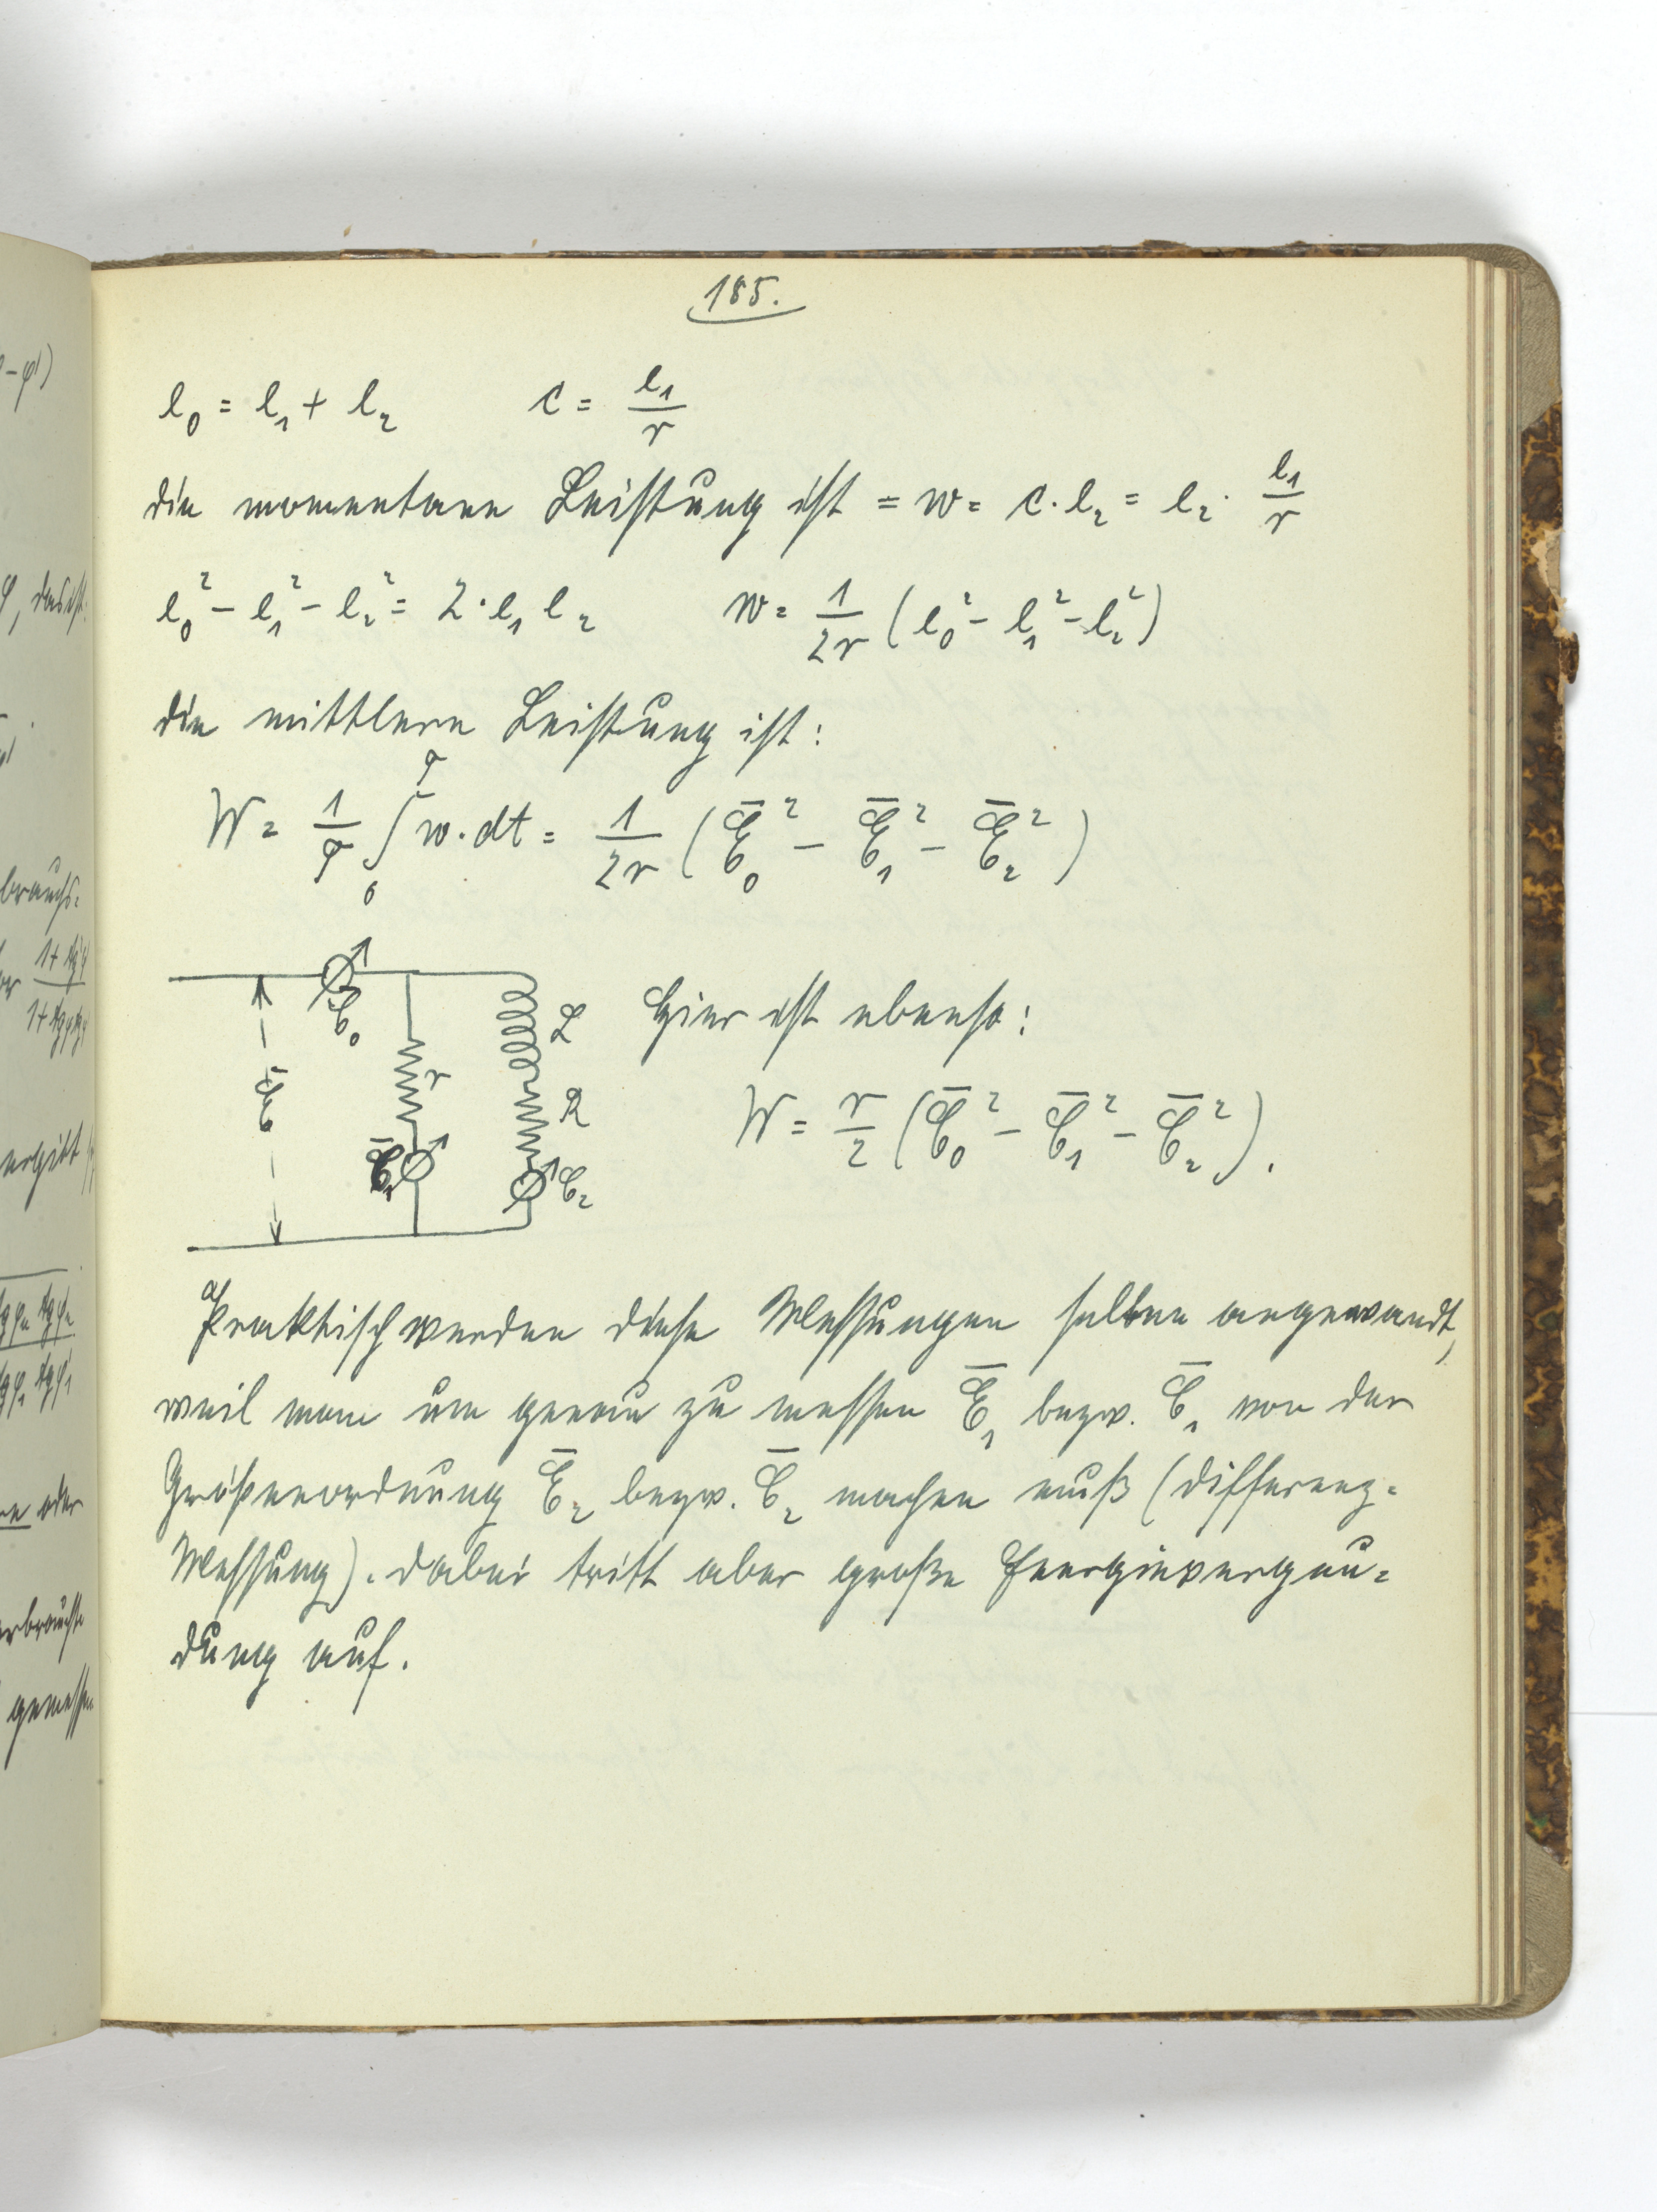 185.
e₀ = e₁ + e₂ c = e₁/r
die momentane Leistung ist = w = c · e₂ = e₂ · e₁/r
e₀² - e₁² - e₂² = 2 · e₁ e₂ w = 1/2r (e₀² - e₁² - e₂²)
die mittlere Leistung ist:
W = 1/T ∫₀ᵀ w · dt = 1/2r (Ē₀² - Ē₁² - Ē₂²)
C̄₀
L
Hier ist ebenso:
Ē
r
R
W = r/2 (C̄₀² - C̄₁² - C̄₂²).
C̄₁
C̄₂
Praktisch werden diese Messungen selten angewandt,
weil man um genau zu messen Ē₁ bezw. C̄₁ von der
Größenordnung Ē₂ bezw. C̄₂ machen muß (Differenz=
Messung). Dabei tritt aber große Energievergeu=
dung auf.